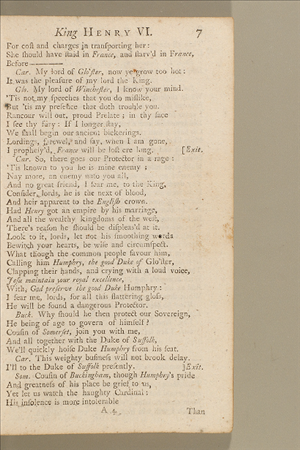 King HENRY VI. 7
For cost and charges in transporting her:
She should have staid in France, and starv'd in France,
Before———
Car. My lord of Glo'ster, now ye grow too hot:
It was the pleasure of my lord the King.
Glo. My lord of Winchester, I know your mind.
'Tis not my speeches that you do mislike,
But 'tis my presence that doth trouble you.
Rancour will out, proud Prelate; in thy face
I see thy fury: If I longer stay,
We shall begin our ancient bickerings.
Lordings, farewel; and say, when I am gone,
I prophesy'd, France will be lost ere long. [Exit.
Car. So, there goes our Protector in a rage:
'Tis known to you he is mine enemy;
Nay more, an enemy unto you all,
And no great friend, I fear me, to the King.
Consider, lords, he is the next of blood,
And heir apparent to the English crown.
Had Henry got an empire by his marriage,
And all the wealthy kingdoms of the west,
There's reason he should be displeas'd at it.
Look to it, lords, let not his smoothing words
Bewitch your hearts, be wise and circumspect.
What though the common people favour him,
Calling him Humphry, the good Duke of Glo'ster,
Clapping their hands, and crying with a loud voice,
Jesu maintain your royal excellence,
With, God preserve the good Duke Humphry:
I fear me, lords, for all this flattering gloss,
He will be found a dangerous Protector.
Buck. Why should he then protect our Sovereign,
He being of age to govern of himself?
Cousin of Somerset, join you with me,
And all together with the Duke of Suffolk,
We'll quickly hoise Duke Humphry from his seat.
Car. This weighty business will not brook delay.
I'll to the Duke of Suffolk presently. [Exit.
Som. Cousin of Buckingham, though Humphry's pride
And greatness of his place be grief to us,
Yet let us watch the haughty Cardinal:
His insolence is more intolerable
A 4 Than